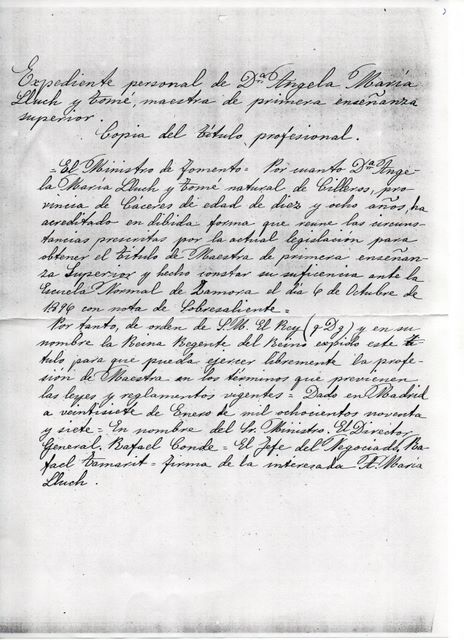 Expediente personal de Dª Angela María
Lluch y Tomé, maestra de primera enseñanza
superior.
Copia del Título profesional.
= El Ministro de Fomento = Por cuanto Dª Ange-
la María Lluch y Tomé natural de Cilleros, pro-
vincia de Cáceres de edad de diez y ocho años, ha
acreditado en debida forma que reune las circuns-
tancias prescritas por la actual legislación para
obtener el Título de Maestra de primera enseñan-
za Superior y hecho constar su suficencia ante la
Escuela Normal de Zamora el día 6 de Octubre de
1896 con nota de Sobresaliente =
Por tanto, de orden de S.M. El Rey (q. D. g) y en su
nombre la Reina Regente del Reino expido este tí-
tulo, para que pueda ejercer libremente la profe-
sión de Maestra en los términos que previenen
las leyes y reglamentos vigentes = Dado en Madrid
a veintisiete de Enero de mil ochocientos noventa
y siete = En nombre del Sr. Ministro. El Director
General, Rafael Conde = El Jefe del Negociado, Ra-
fael Tamarit = firma de la interesada A. María
Lluch.